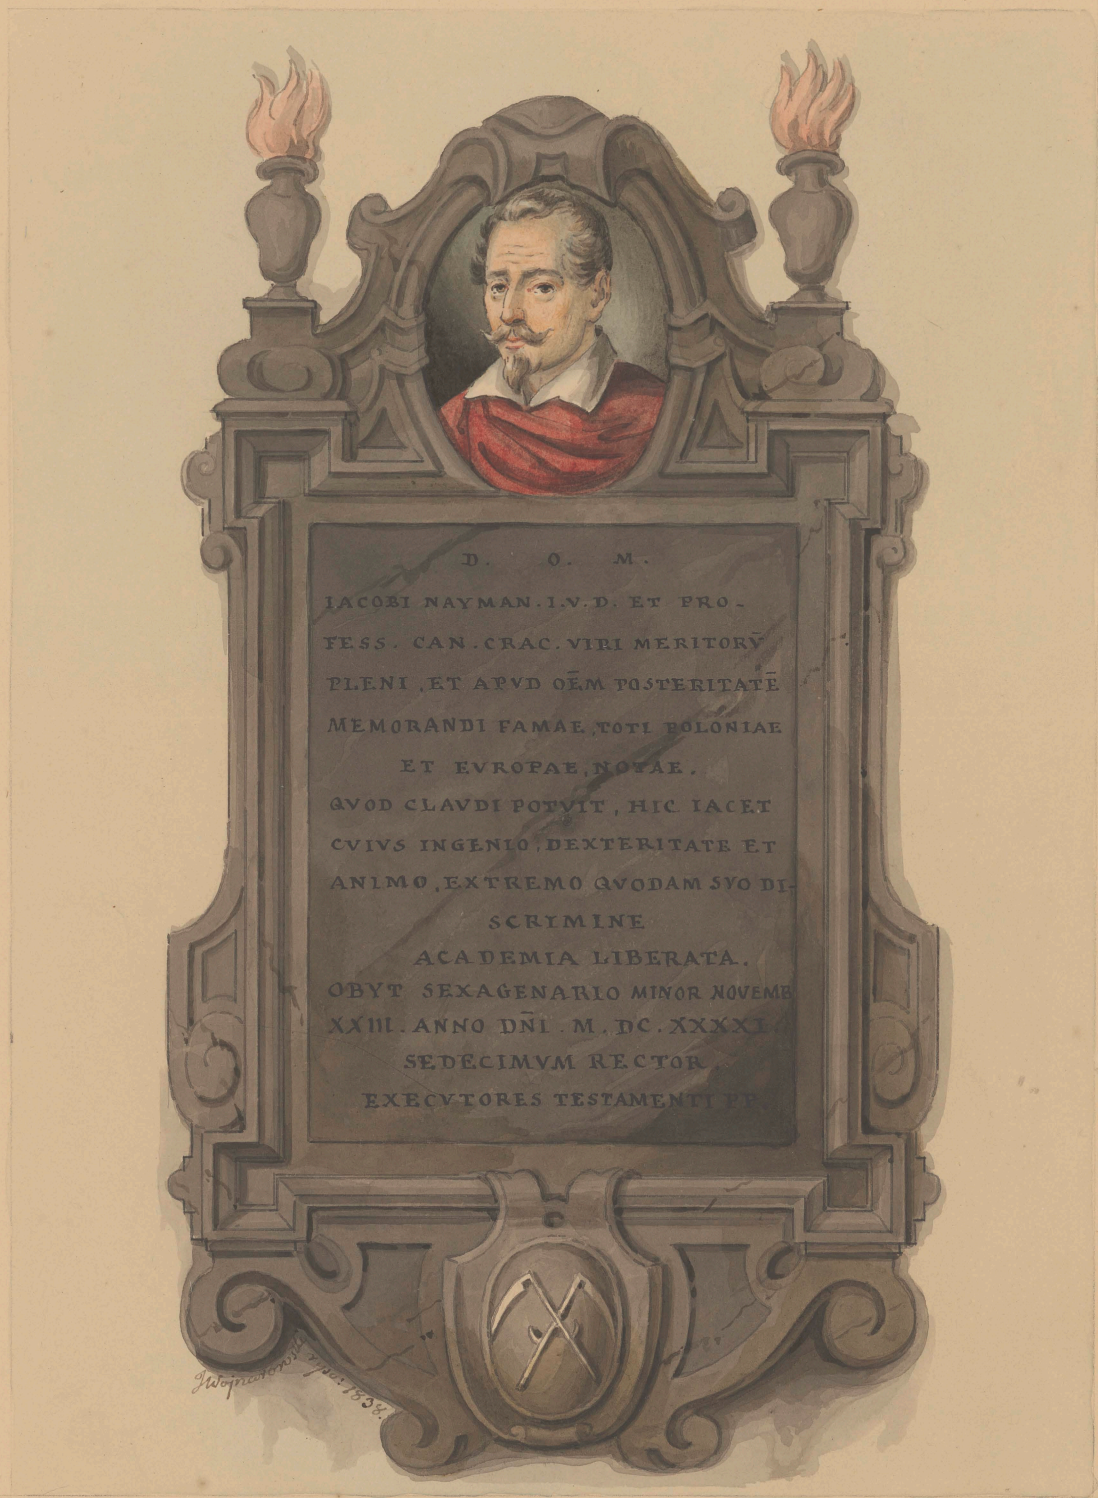 D. O. M.
IACOBI NAYMAN. I. V. D. ET PRO-
FESS. CAN. CRAC. VIRI MERITORV̄
PLENI, ET APVD OĒM POSTERITATĒ
MEMORANDI FAMAE, TOTI POLONIAE
ET EVROPAE, NOTAE.
QVOD CLAVDI POTVIT, HIC IACET
CVIVS INGENIO, DEXTERITATE ET
ANIMO, EXTREMO QVODAM SVO DI-
SCRIMINE
ACADEMIA LIBERATA.
OBYT SEXAGENARIO MINOR NOVEMB
XXIII. ANNO DN̄I. M. DC. XXXXI.
SEDECIMVM RECTOR,
EXECVTORES TESTAMENTI PP.
1838.